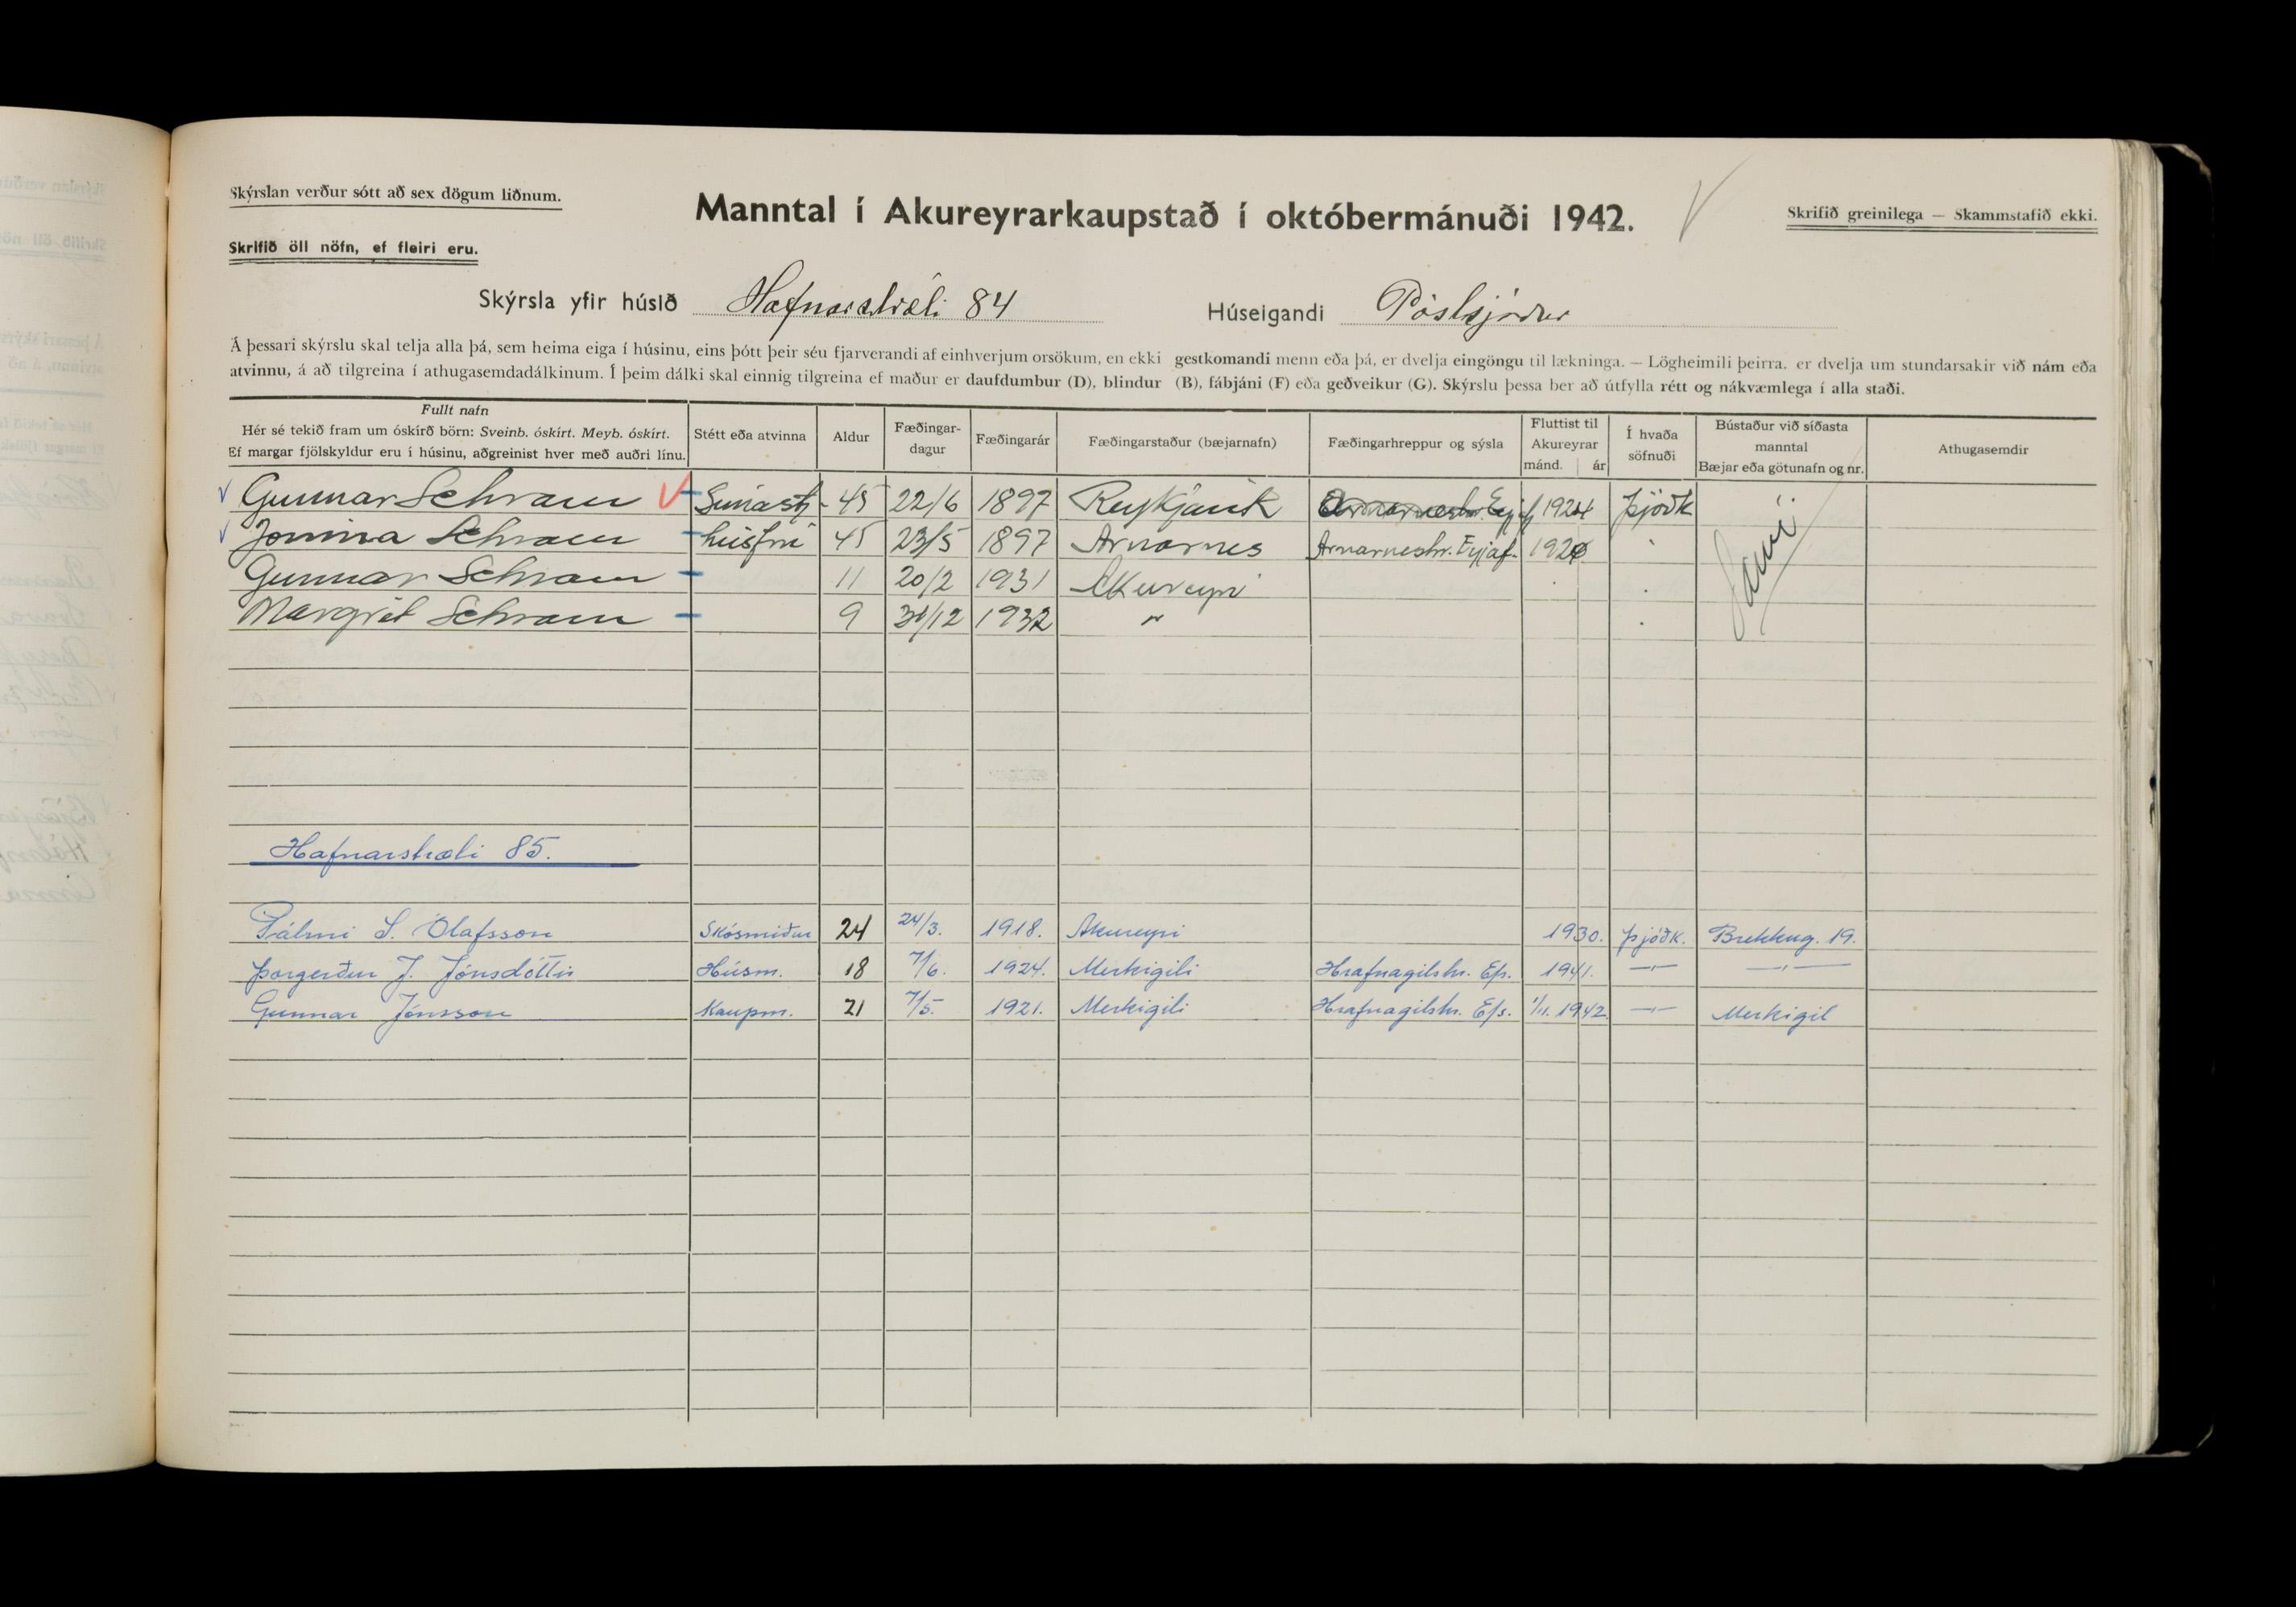 Skýrslan verður sótt að sex dögum liðnum.
Skrifið öll nöfn, ef fleiri eru.
Manntal í Akureyrarkaupstað í októbermánuði 1942.
Skrifið greinilega — Skammstafið ekki.
Skýrsla yfir húsið Hafnarstræti 84 Húseigandi Póstsjóður
Á þessari skýrslu skal telja alla þá, sem heima eiga í húsinu, eins þótt þeir séu fjarverandi af einhverjum orsökum, en ekki gestkomandi menn eða þá, er dvelja eingöngu til lækninga. — Lögheimili þeirra. er dvelja um stundarsakir við nám eða
atvinnu, á að tilgreina í athugasemdadálkinum. Í þeim dálki skal einnig tilgreina ef maður er daufdumbur (D), blindur (B), fábjáni (F) eða geðveikur (G). Skýrslu þessa ber að útfylla rétt og nákvæmlega í alla staði.
Fullt nafn
Hér sé tekið fram um óskírð börn: Sveinb. óskírt. Meyb. óskírt.
Ef margar fjölskyldur eru í húsinu, aðgreinist hver með auðri línu.
Stétt eða atvinna
Aldur
Fæðingar-
dagur
Fæðingarár
Fæðingarstaður (bæjarnafn)
Fæðingarhreppur og sýsla
Fluttist til
Akureyrar
mánd. ár
Í hvaða
söfnuði
Bústaður við síðasta
manntal
Bæjar eða götunafn og nr.
Athugasemdir
Gunnar Schram Símastj. 45 22/6 1897 Reykjavík 1924 Þjóðk
Jónína Schram húsfrú 45 23/5 1897 Arnarnes Arnarneshr. Eyjaf. "
Gunnar Schram 11 20/2 1931 Akureyri "
Margrét Schram 9 31/12 1932 " "
Sami
Hafnarstræti 85.
Pálmi S. Ólafsson Skósmiður 24 24/3. 1918. Akureyri 1930. Þjóðk. Brekkug. 19.
Þorgerður J. Jónsdóttir Húsm. 18 7/6. 1924. Merkigili Hrafnagilshr. Ef. 1941. —"— —"—
Gunnar Jónsson Kaupm. 21 7/5. 1921. Merkigili Hrafnagilshr. Efs. 1/11. 1942. —"— Merkigil